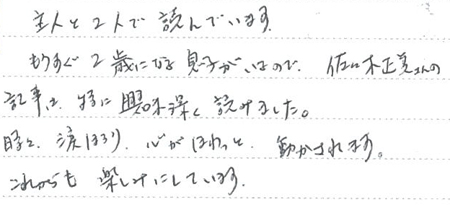 主人と2人で読んでいます。
もうすぐ2歳になる息子がいるので、佐々木正美さんの
記事は、特に興味深く読みました。
時々、涙ほろり、心がほわっと、動かされます。
これからも楽しみにしています。